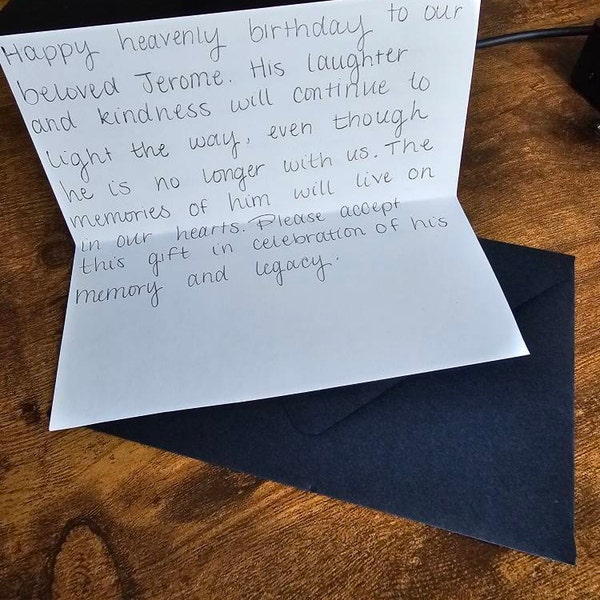 Happy heavenly birthday to our
beloved Jerome. His laughter
and kindness will continue to
light the way, even though
he is no longer with us. The
memories of him will live on
in our hearts. Please accept
this gift in celebration of his
memory and legacy.